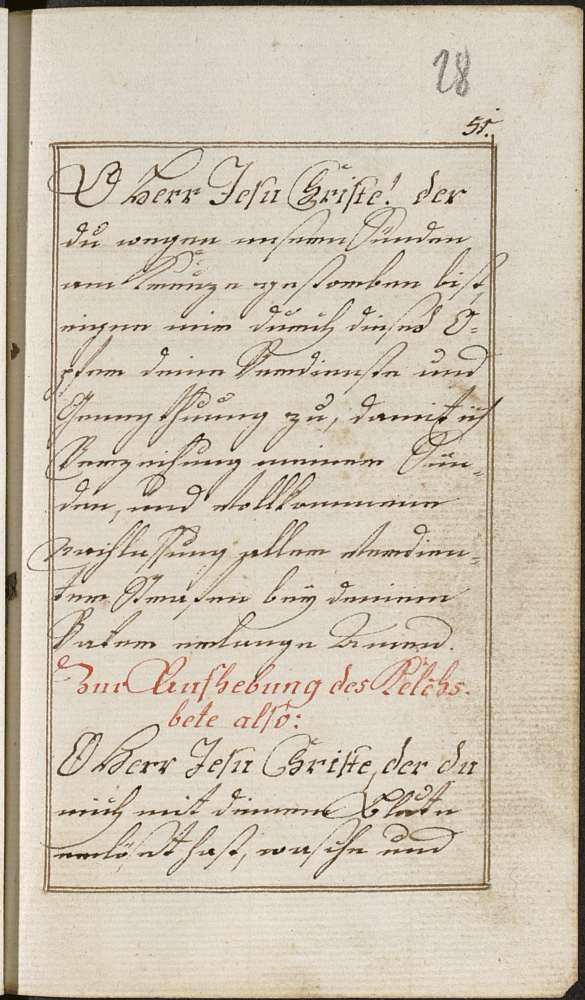 28
51.
O Herr Jesu Christe! der
du wegen unsern Sünden
am Kreuze gestorben bist,
eigne mir durch dieses O-
pfer deine Verdienste und
Genugthuung zu, damit ich
Verzeihung meiner Sün-
den, und vollkommene
Nachlassung aller verdien-
ten Strafen bey deinem
Vater erlange Amen.
Zur Aufhebung des Kelchs.
bete also:
O Herr Jesu Christe, der du
mich mit deinem Blute
erlöset hast, wasche und